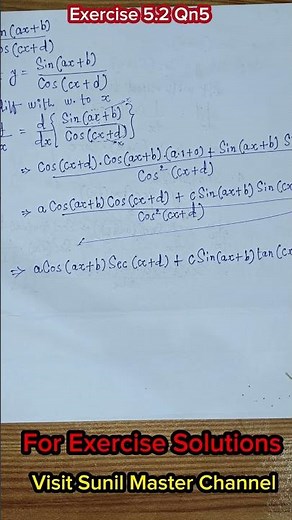 Exercise 5.2 Qn5
in(ax+b)
os(cx+d)
y = Sin(ax+b)
Cos(cx+d)
diff with w. to x
= d/dx { Sin(ax+b) / Cos(cx+d) }
⇒ Cos(cx+d).Cos(ax+b).(a.1+0) + Sin(ax+b) S
Cos²(cx+d)
⇒ a Cos(ax+b) Cos(cx+d) + c Sin(ax+b) Sin(cx
Cos²(cx+d)
⇒ a Cos(ax+b) Sec(cx+d) + c Sin(ax+b) tan(c
For Exercise Solutions
Visit Sunil Master Channel